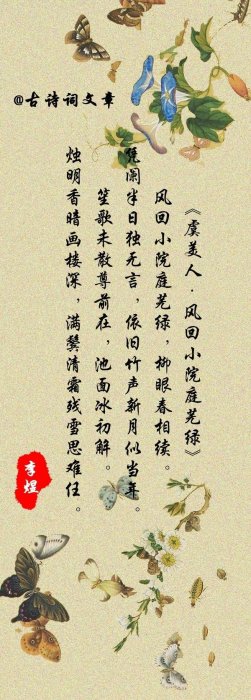 《虞美人·风回小院庭芜绿》
风回小院庭芜绿，柳眼春相续。
凭阑半日独无言，依旧竹声新月似当年。
笙歌未散尊前在，池面冰初解。
烛明香暗画楼深，满鬓清霜残雪思难任。
李煜
@古诗词文章